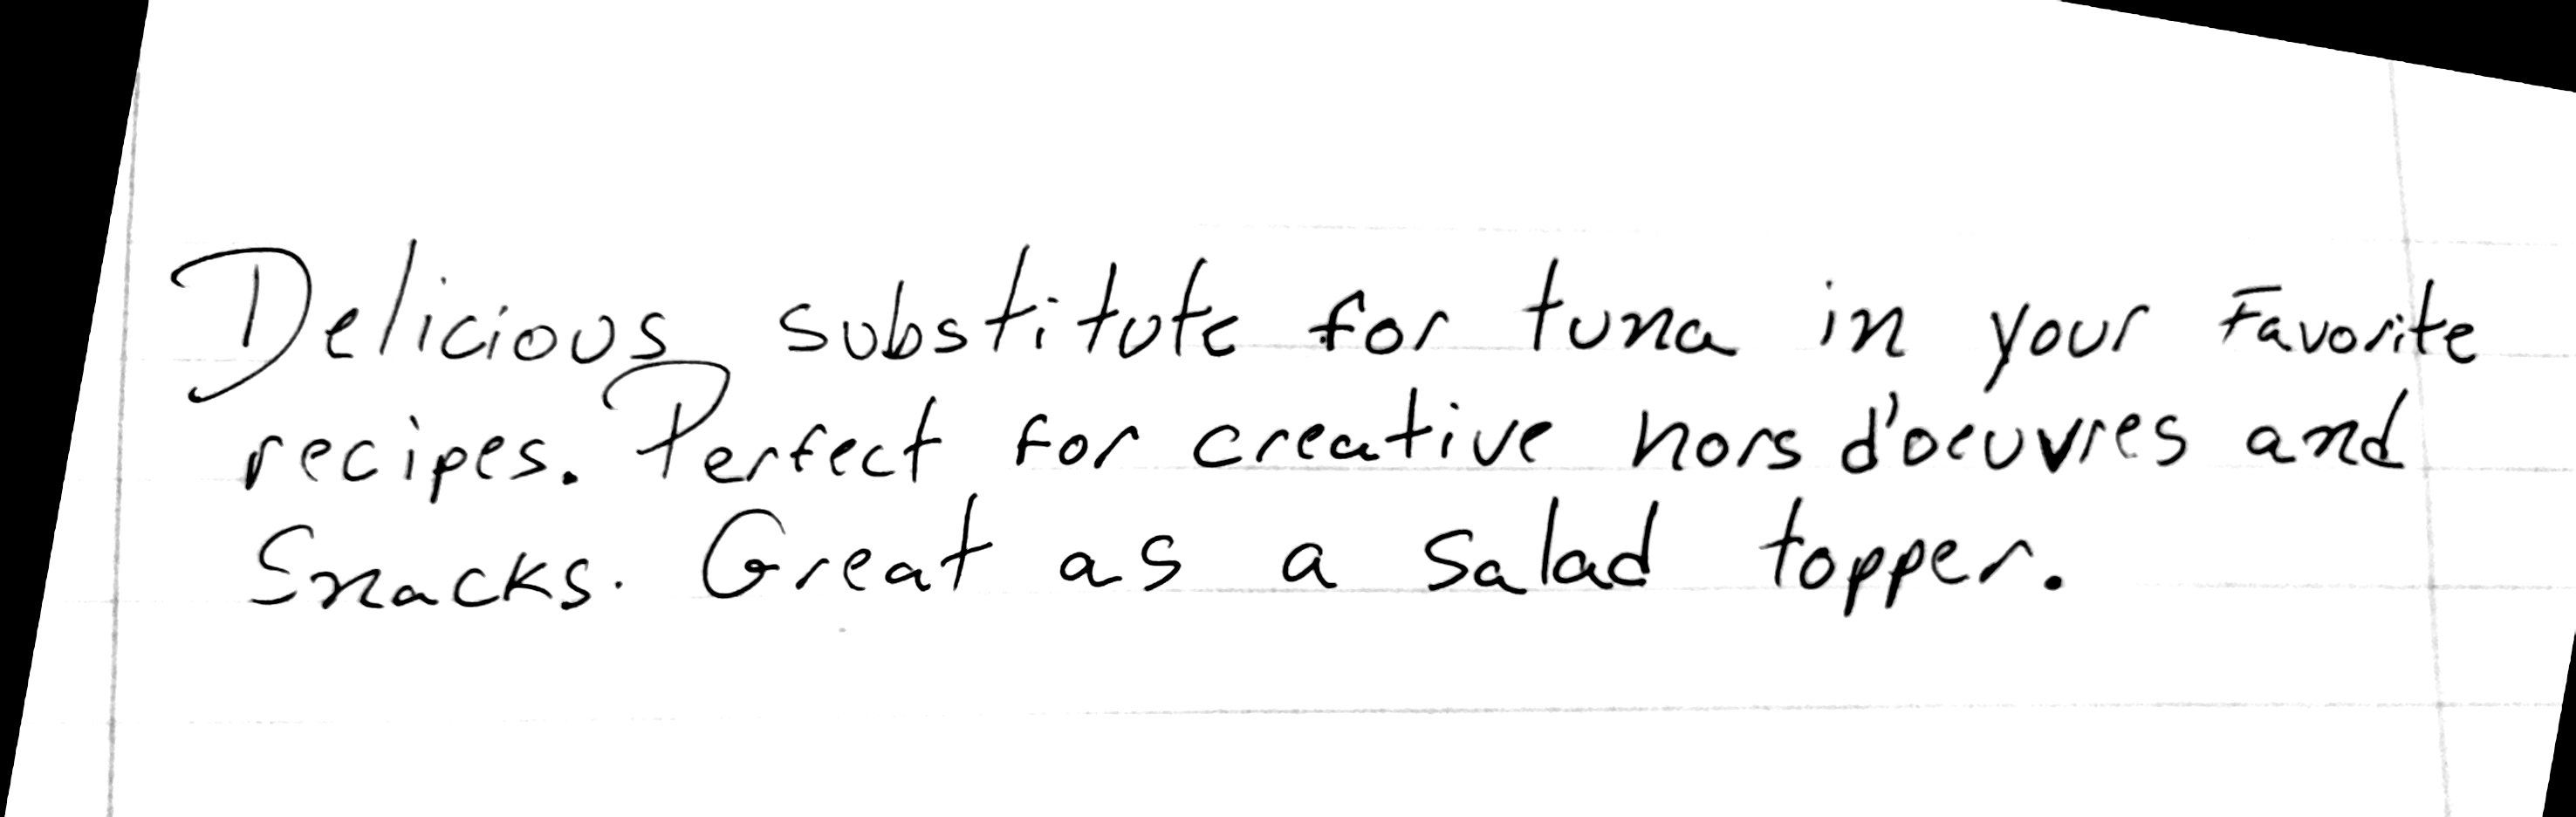 Delicious substitute for tuna in your favorite
recipes. Perfect for creative hors d'oeuvres and
snacks. Great as a salad topper.